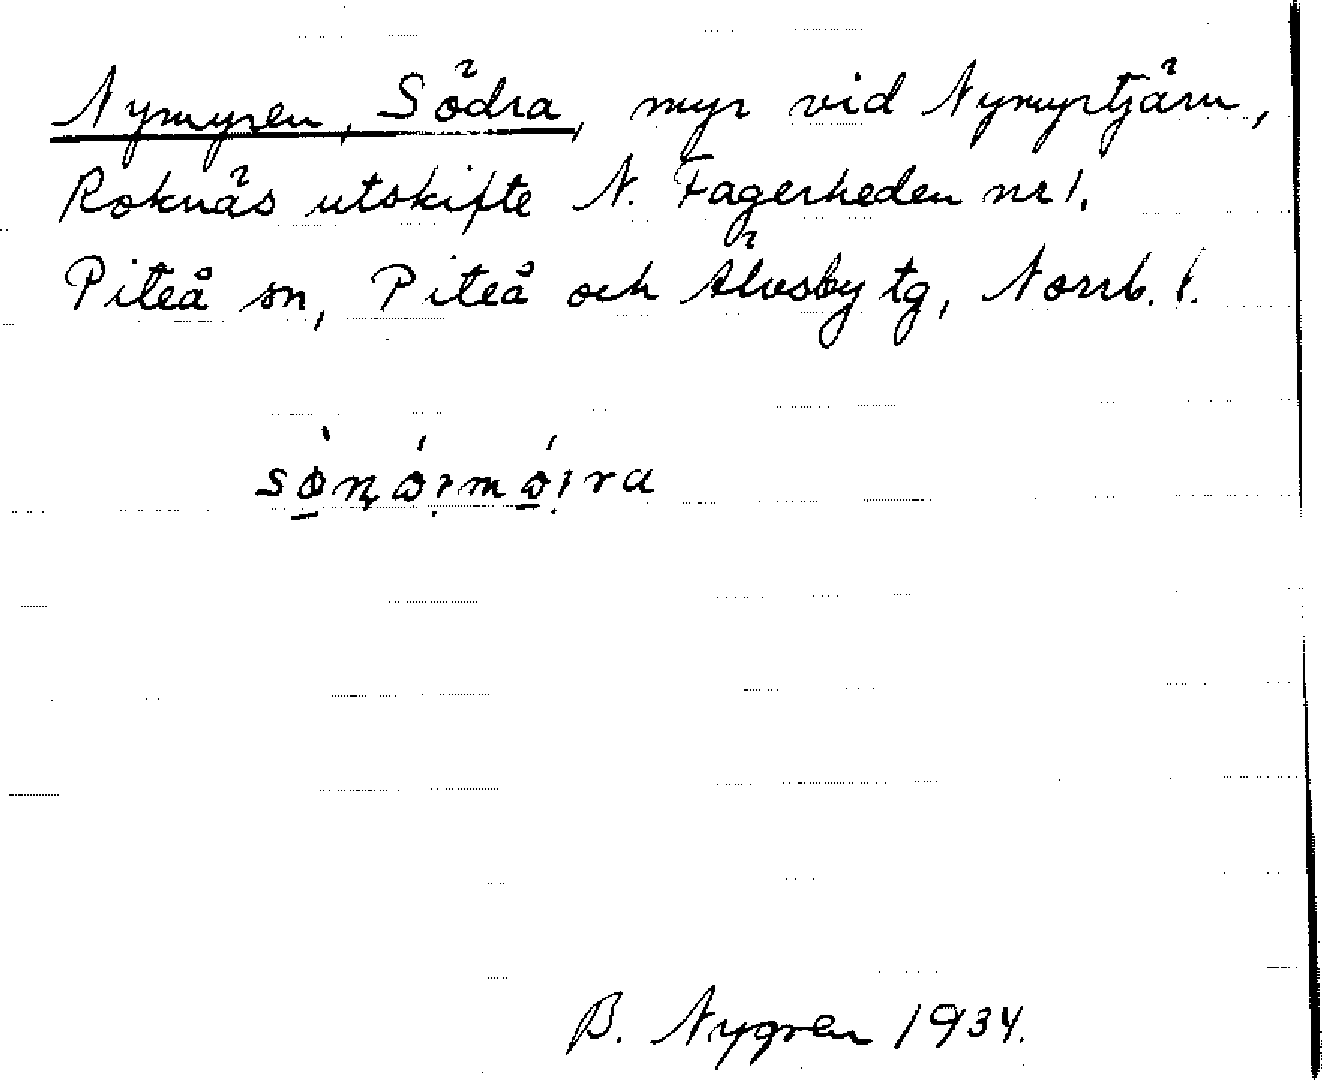 Nymyren, Södra, myr vid Nymyrtjärn,
Roknäs utskifte N. Fagerheden nr 1.
Piteå sn, Piteå och Älvsby tg, Norrb. l.
B. Nygren 1934.